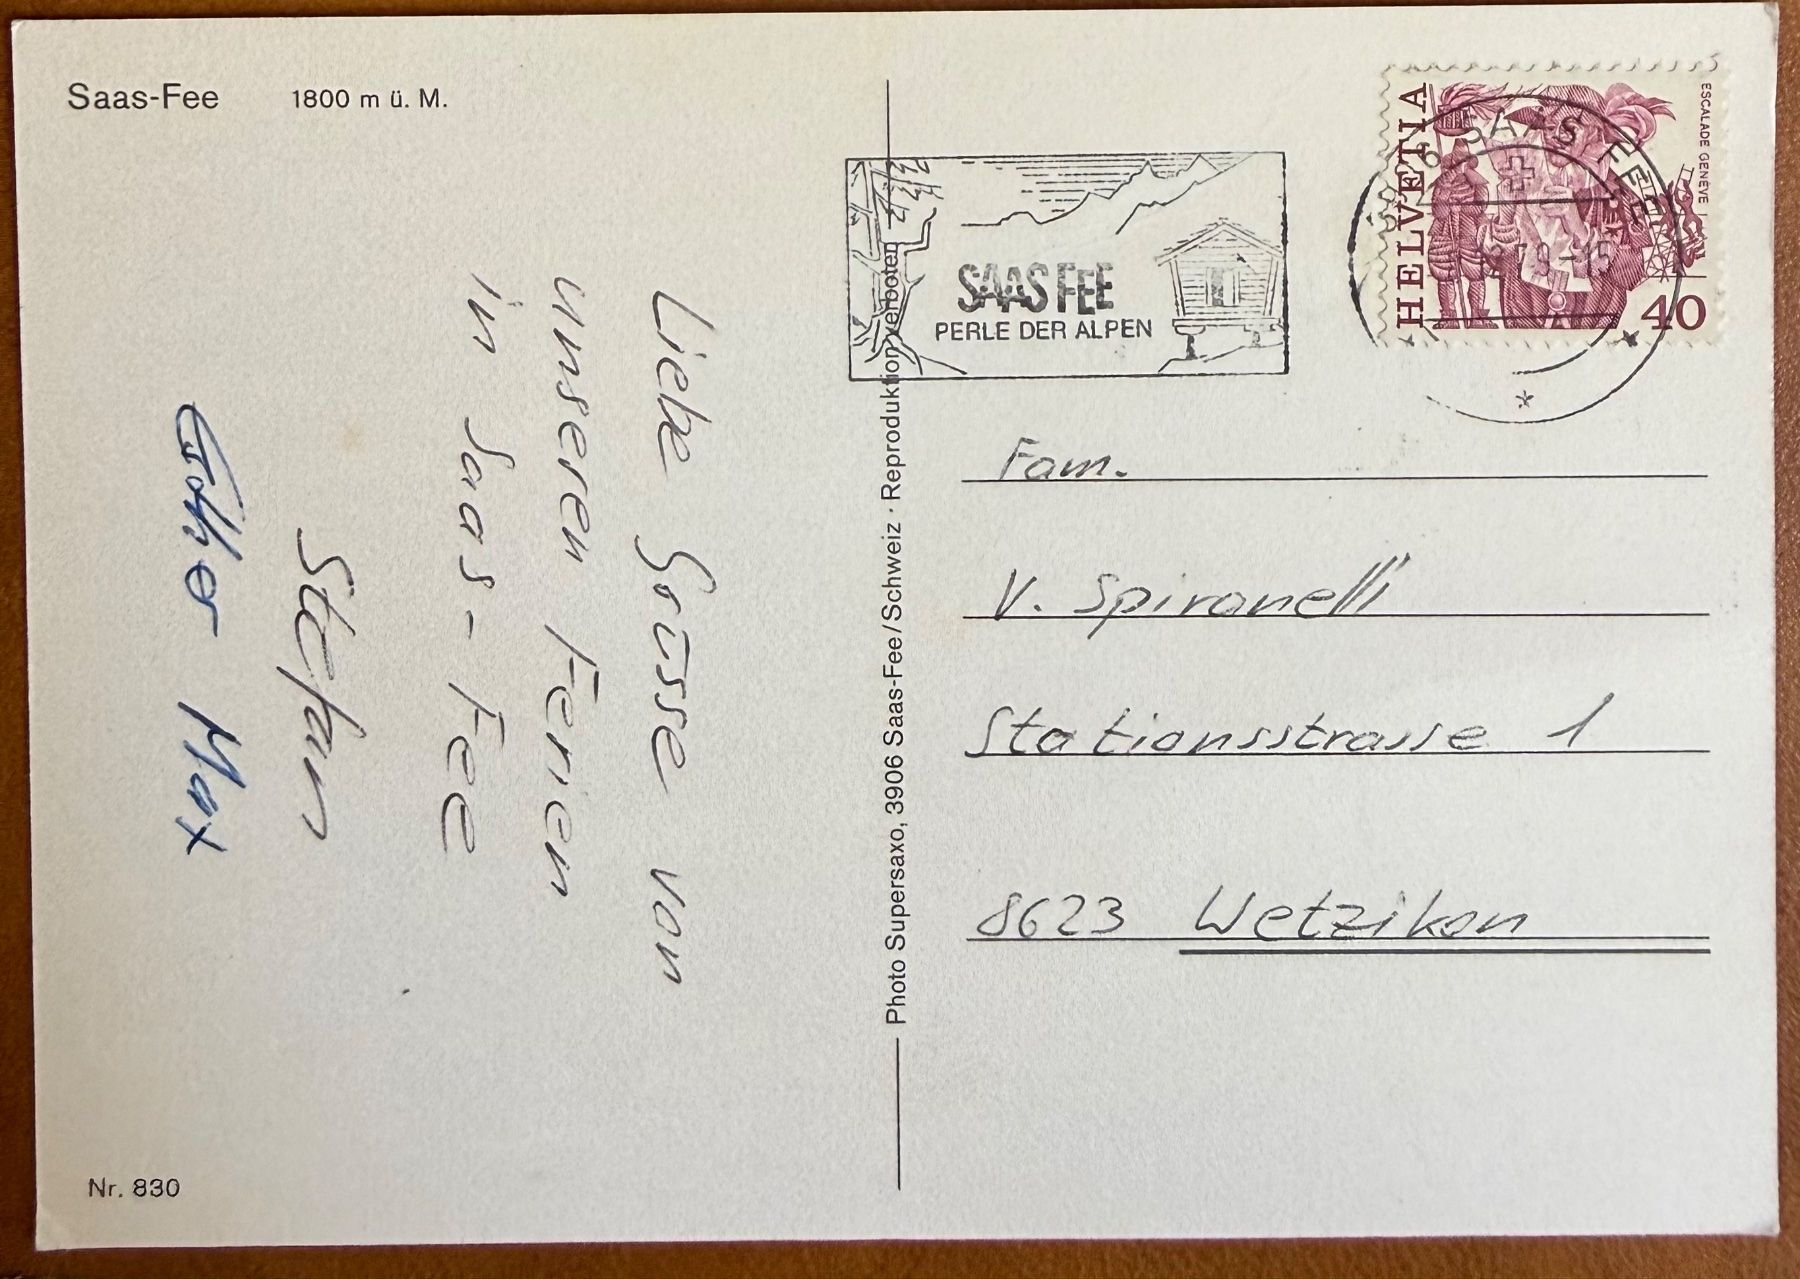 Saas-Fee 1800 m ü. M.
Liebe Grüsse von
unseren Ferien
in Saas-Fee
Stefan
Esther Max
Nr. 830
Photo Supersaxo, 3906 Saas-Fee/Schweiz · Reproduktion verboten
SAAS FEE
PERLE DER ALPEN
SAAS FEE
HELVETIA
ESCALADE GENÈVE
40
Fam.
V. Spiranelli
Stationsstrasse 1
8623 Wetzikon